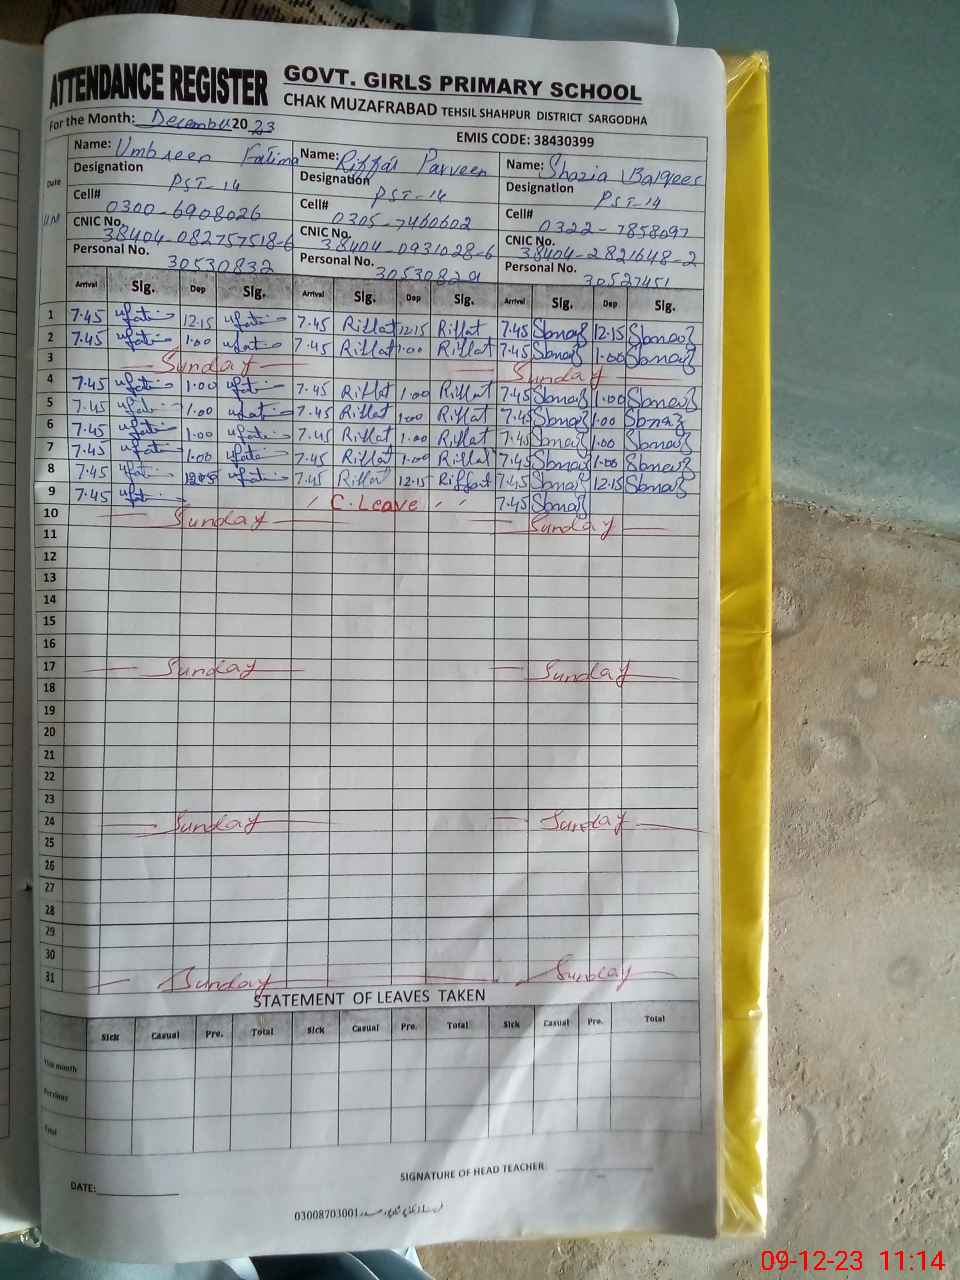 ATTENDANCE REGISTER
GOVT. GIRLS PRIMARY SCHOOL
CHAK MUZAFRABAD TEHSIL SHAHPUR DISTRICT SARGODHA
For the Month: December 2023
EMIS CODE: 38430399
Date
Name: Umbreen Fatima Name: Riffat Parveen Name: Shazia Balqees
Designation PST-14 Designation PST-14 Designation PST-14
Cell# 0300-6908026 Cell# 0305-7460602 Cell# 0322-7858097
CNIC No. 38404-082757518-6 CNIC No. 38404-0931028-6 CNIC No. 38404-2821648-2
Personal No. 30530832 Personal No. 30530829 Personal No. 30527451
Arrival Sig. Dep Sig. Arrival Sig. Dep Sig. Arrival Sig. Dep Sig.
1 7.45 ufati 12.15 ufati 7.45 Riffat 12.15 Riffat 7.45 Sbnaz 12.15 Sbnaz
2 7.45 ufati 1.00 ufati 7.45 Riffat 1.00 Riffat 7.45 Sbnaz 1.00 Sbnaz
3 Sunday Sunday
4 7.45 ufati 1.00 ufati 7.45 Riffat 1.00 Riffat 7.45 Sbnaz 1.00 Sbnaz
5 7.45 ufati 1.00 ufati 7.45 Riffat 1.00 Riffat 7.45 Sbnaz 1.00 Sbnaz
6 7.45 ufati 1.00 ufati 7.45 Riffat 1.00 Riffat 7.45 Sbnaz 1.00 Sbnaz
7 7.45 ufati 1.00 ufati 7.45 Riffat 1.00 Riffat 7.45 Sbnaz 1.00 Sbnaz
8 7.45 ufati ufati 7.45 Riffat 12.15 Riffat 7.45 Sbnaz 12.15 Sbnaz
9 7.45 ufati C.Leave 7.45 Sbnaz
10 Sunday Sunday
11
12
13
14
15
16
17 Sunday Sunday
18
19
20
21
22
23
24 Sunday Sunday
25
26
27
28
29
30
31 Sunday Sunday
STATEMENT OF LEAVES TAKEN
Sick Casual Pre. Total Sick Casual Pre. Total Sick Casual Pre. Total
This month
Previous
Total
SIGNATURE OF HEAD TEACHER
DATE:
03008703001
09-12-23 11:14